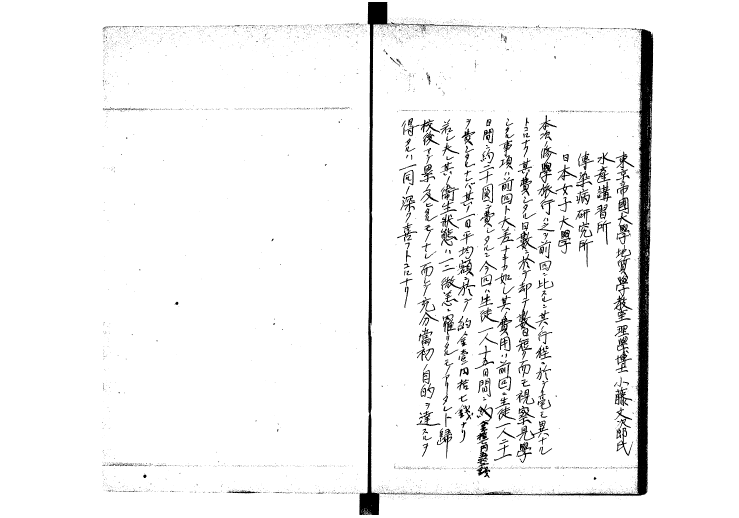 東京帝國大學地質學教室理學博士小藤文次郎氏
水產講習所
傳染病研究所
日本女子大學
本次ノ修學旅行ハ之ヲ前回ニ比スルニ其行程ニ於テ毫モ異ナル
トコロナク其費シタル日數ニ於テ却テ數日短ク而モ視察見學
シタル事項ハ前回ト大差ナキカ如シ其費用ハ前回ハ生徒一人二十
日間ニ約二十圓ヲ費シタルニ今回ハ生徒一人十五日間ニ約
ヲ費シタレハ其一日平均額ニ於テ約金壹円拾七錢ナリ
若シ夫レ其ノ衛生狀態ハ二三微恙ニ罹リタルモノアリタレト歸
校後マタ異狀ヲ見ルモノナシ而シテ充分當初ノ目的ヲ達スルヲ
得タルハ一同ノ深ク喜フトコロナリ